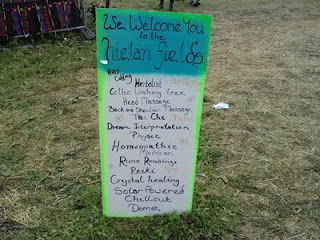 We Welcome You
to the
hielan fields
Hair Cutting
Herbalist
Celtic Wishing Tree
Head Massage
Back and Shoulder Massage
Tai Chi
Dream Interpretation
Physic
Homeopathic
Medician
Rune Readings
Reiki
Crystal healing
Solar Powered
Chillout
Dome